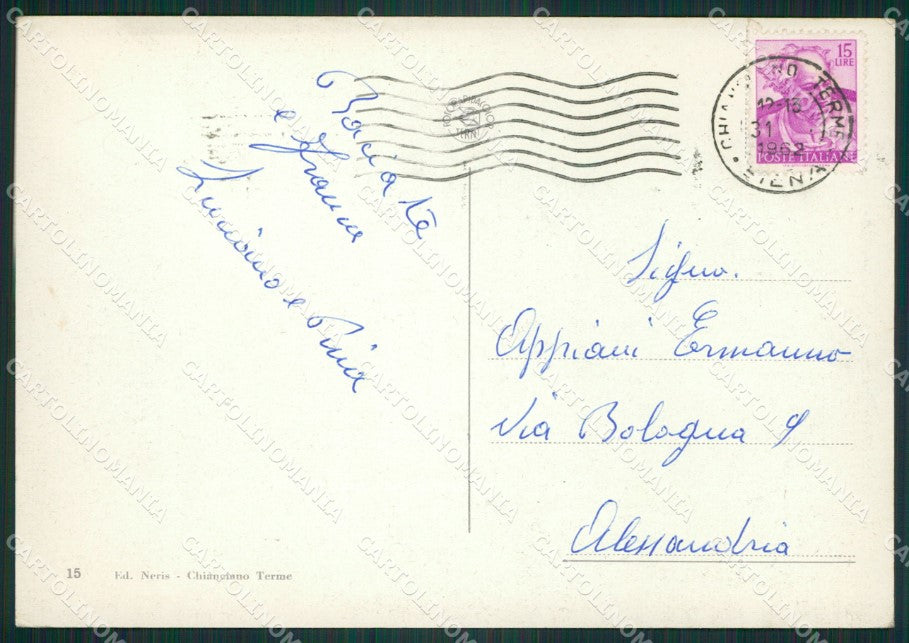 Bacia te
e Gianna
Luciano e Pina
15 LIRE
POSTE ITALIANE
CHIANCIANO TERME
12-13
31
1962
SIENA
Signo.
Appiani Ermanno
Via Bologna 9
Alessandria
15 Ed. Neris - Chianciano Terme
CARTOLINOMANIA